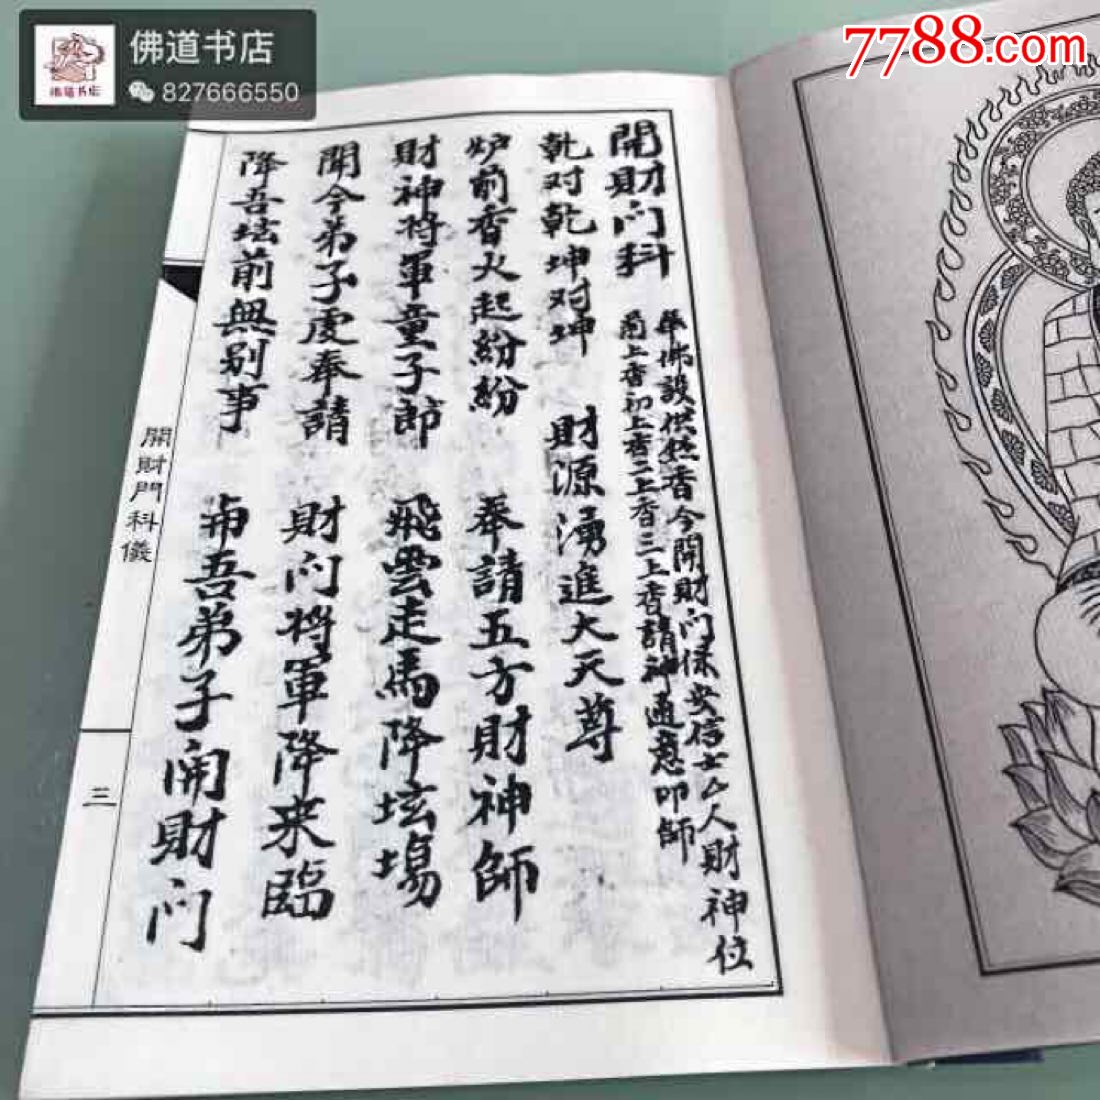 佛道书店
827666550
7788.com
開財门科
奉佛設供燃香今開財门保安信士厶人財神位
前上香初上香二上香三上香請神通意叩師
乹对乾坤对坤 財源湧進大天尊
炉前香火起紛紛 奉請五方財神師
財神将軍童子郎 飛雲走馬降坛場
聞今弟子虔奉請 財门将軍降来臨
降吾坛前無别事 吾弟子開財门
開財門科儀
三